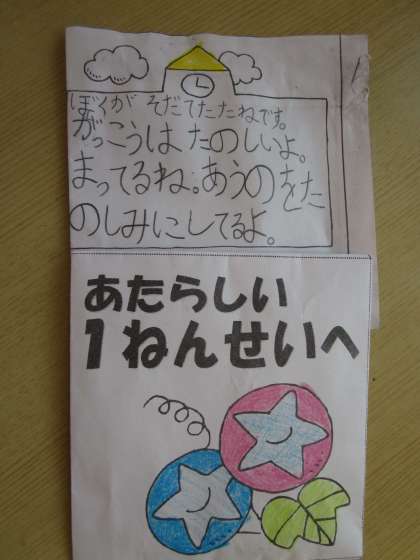 ぼくが そだてたたねです。
がっこうは たのしいよ。
まってるね。あうのをた
のしみにしてるよ。
あたらしい
1ねんせいへ